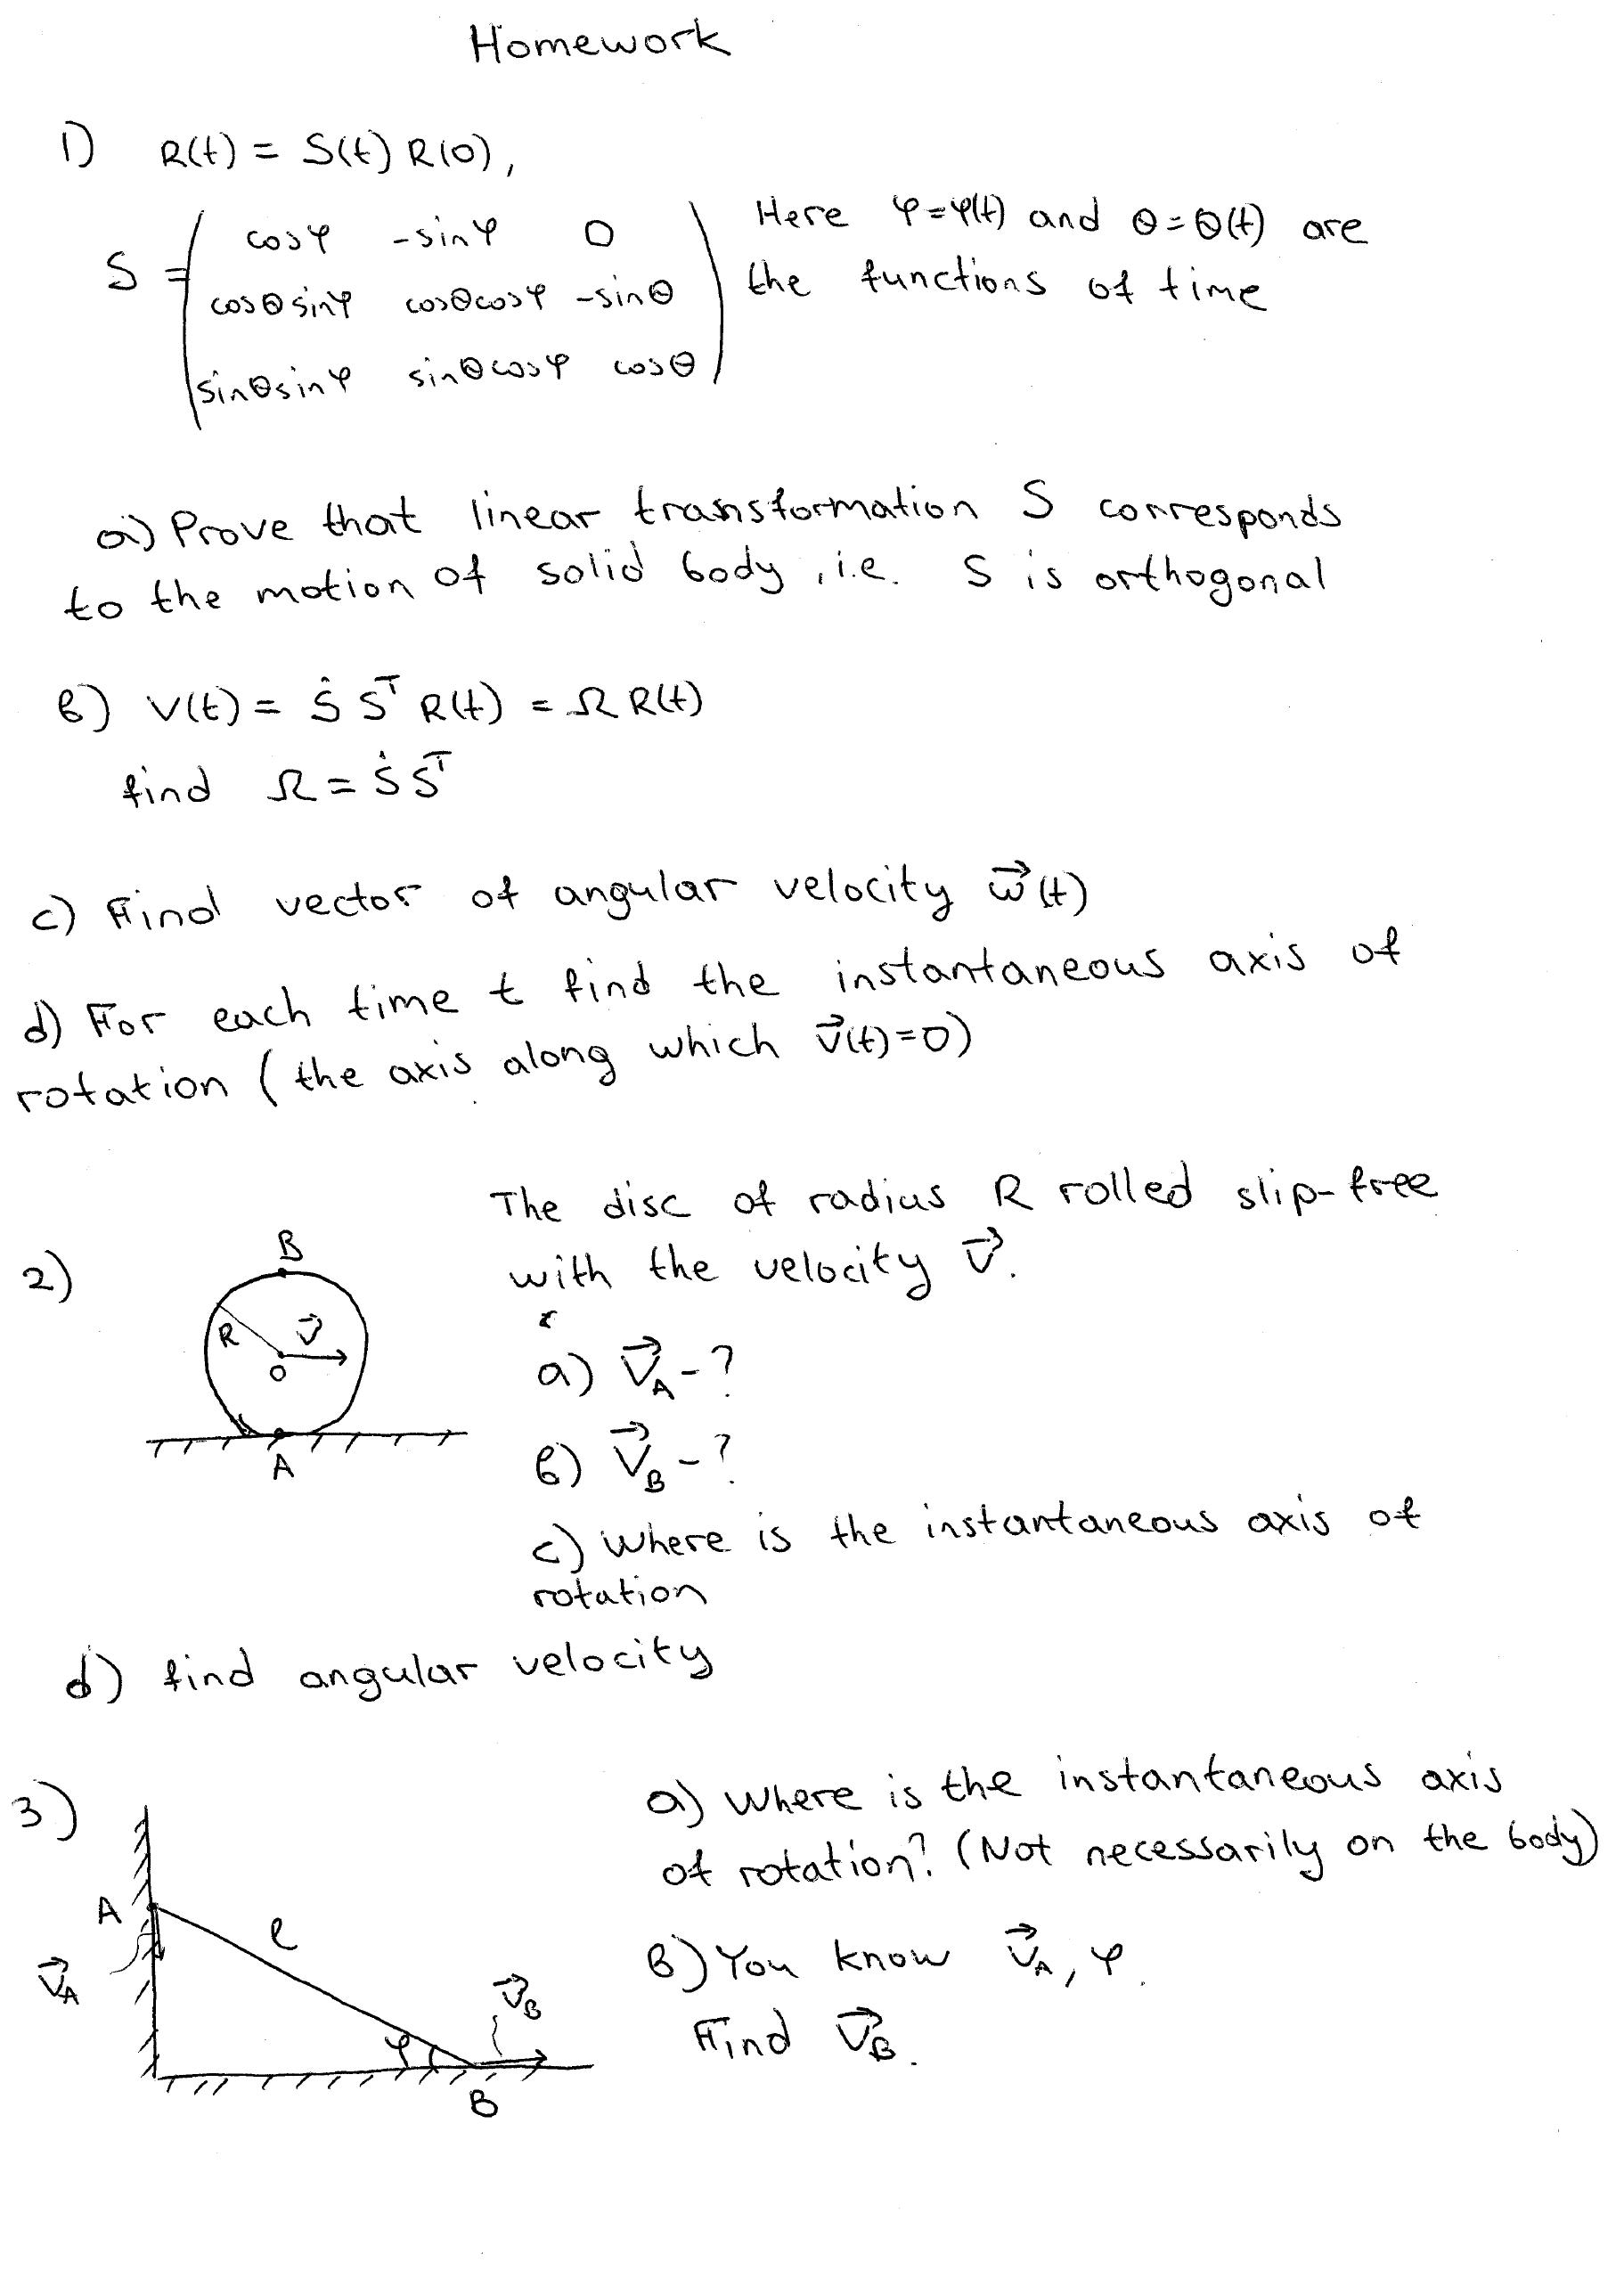 Homework
1) R(t) = S(t) R(0),
Here φ=φ(t) and θ=θ(t) are
the functions of time
S = ( cosφ -sinφ 0
cosθsinφ cosθcosφ -sinθ
sinθsinφ sinθcosφ cosθ )
a) Prove that linear transformation S corresponds
to the motion of solid body, i.e. S is orthogonal
b) V(t) = Ṡ Sᵀ R(t) = Ω R(t)
find Ω = Ṡ Sᵀ
c) Find vector of angular velocity ω⃗(t)
d) For each time t find the instantaneous axis of
rotation (the axis along which v⃗(t)=0)
2)
The disc of radius R rolled slip-free
with the velocity v⃗.
B
R
v⃗
O
A
a) v⃗_A - ?
b) v⃗_B - ?
c) Where is the instantaneous axis of
rotation
d) find angular velocity
3)
a) Where is the instantaneous axis
of rotation? (Not necessarily on the body)
b) You know v⃗_A, φ.
Find v⃗_B.
A
l
v⃗_A
v⃗_B
φ
B